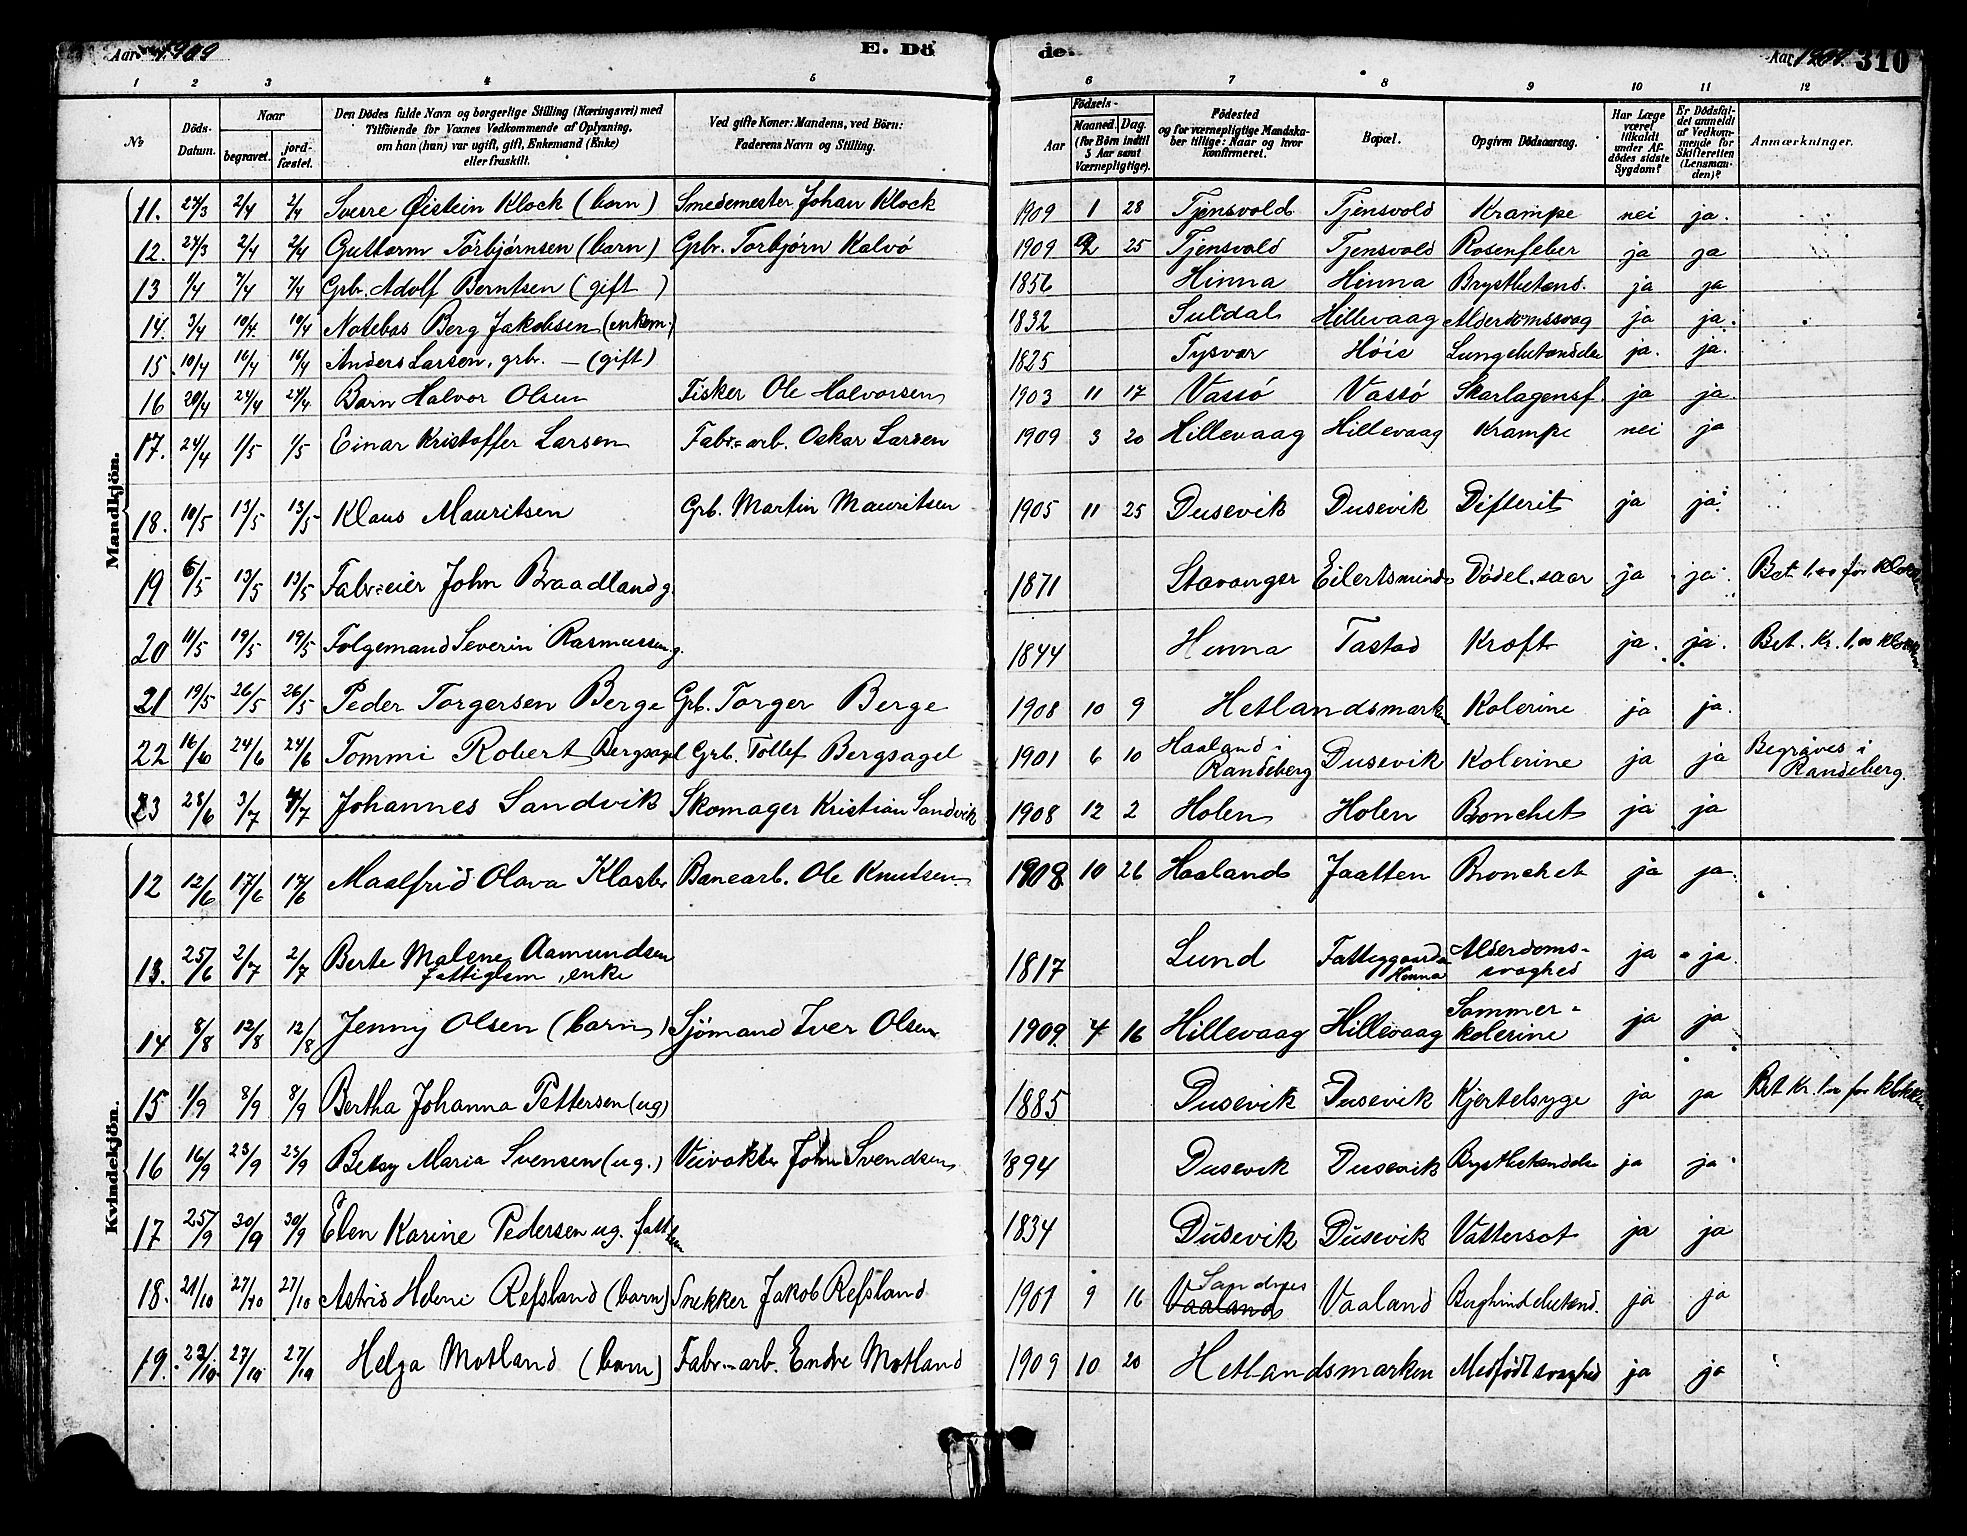 Aar 1909 E. Dö
de. Aar 1909. 310
1 2 3 4 5 6 7 8 9 10 11 12
No
Döds-Datum.
Naar
begravet.
jord-fæstet.
Den Dödes fulde Navn og borgerlige Stilling (Næringsvei) med
Tilföiende for Vaxnes Vedkommende af Oplysning,
om han (hun) var ugift, gift, Enkemand (Enke)
eller fraskilt.
Ved gifte Koner: Mandens, ved Börn:
Faderens Navn og Stilling.
Födsels-
Aar
Maaned. Dag.
(for Börn indtil
5 Aar samt
Værnepligtige).
Födested
og for værnepligtige Mandska-
ber tillige: Naar og hvor
konfirmeret.
Bopæl.
Opgiven Dödsaarsag.
Har Læge
været
tilkaldt
under Af-
dödes sidste
Sygdom?
Er Dödsfal-
det anmeldt
af Vedkom-
mende for
Skifteretten
(Lensman-
den)?
Anmærkninger.
Mandkjön.
11. 27/3 2/4 2/4 Sverre Øistein Klock (barn) Smedemester Johan Klock 1909 1 28 Tjensvold Tjensvold Krampe nei ja.
12. 27/3 2/4 2/4 Guttorm Torbjørnsen (barn) Gbr. Torbjørn Kalvø 1909 2 25 Tjensvold Tjensvold Rosenfeber ja ja
13 1/4 7/4 7/4 Gbr. Adolf Berntsen (gift) 1856 Hinna Hinna Brystbetænd. ja ja
14. 3/4 10/4 10/4 Notebas Berg Jakobsen (enkem.) 1832 Suldal Hillevaag Alderdomssvag ja ja.
15 10/4 16/4 16/4 Anders Larsen, grbr. - (gift) 1825 Tysvær Høie Lungebetændelse ja. ja.
16 20/4 24/4 24/4 Barn Halvor Olsen Fisker Ole Halvorsen 1903 11 17 Vassø Vassø Skarlagensf. ja ja
17. 24/4 1/5 1/5 Einar Kristoffer Larsen Fabr=arb. Oskar Larsen 1909 3 20 Hillevaag Hillevaag Krampe nei ja
18. 10/5 13/5 13/5 Klaus Mauritsen Grb. Martin Mauritsen 1905 11 25 Dusevik Dusevik Difterit ja ja
19 6/5 13/5 13/5 Fabr=eier John Braadland g. 1871 Stavanger Eilertsminde Dødel. saar ja ja Bet 1,00 for klokken
20 11/5 19/5 19/5 Følgemand Severin Rasmussen g. 1844 Hinna Tastad Kræft ja. ja. Bet. Kr. 1,00 klokken
21 19/5 26/5 26/5 Peder Torgersen Berge Grb. Torger Berge 1908 10 9 Hetlandsmarken Kolerine ja ja.
22 16/6 24/6 24/6 Tommi Robert Bergsagel Grb. Tollef Bergsagel 1901 6 10 Haaland i Randeberg Dusevik Kolerine ja ja Begraves i Randeberg.
23 28/6 3/7 4/7 Johannes Sandvik Skomager Kristian Sandvik 1908 12 2 Holen Holen Bronchet ja ja
Kvindekjön.
12 12/6 17/6 17/6 Maalfrid Olava Kloster Banearb. Ole Knutsen 1908 10 26 Haaland Jaatten Bronchet ja ja
13. 25/6 2/7 2/7 Berte Malene Aamundsen
fattiglem, enke 1817 Lund Fattiggaarden Hinna Alderdoms-
svaghed ja ja.
14 8/8 12/8 12/8 Jenny Olsen (barn) Sjømand Iver Olsen 1909. 4 16 Hillevaag Hillevaag Sommer-
kolerine ja ja
15 1/9 8/9 8/9 Bertha Johanna Pettersen (ug) 1885 Dusevik Dusevik Kjertelsyge ja ja Bet Kr. 1,00 for klokken
16 16/9 23/9 23/9 Betsy Maria Svensen (ug.) Veivokter John Svendsen 1894 Dusevik Dusevik Brystbetændelse ja ja
17 25/9 30/9 30/9 Elen Karine Pedersen ug. fattlem 1834 Dusevik Dusevik Vattersot ja ja
18. 21/10 27/10 27/10 Astrid Heleni Refsland (barn) Snekker Jakob Refsland 1901 9 16 Sandnes Vaaland Vaaland ja ja
19. 22/10 27/10 27/10 Helga Motland (barn) Fabr=arb. Endre Motland 1909 10 20 Hetlandsmarken Medfødt svaghed ja ja